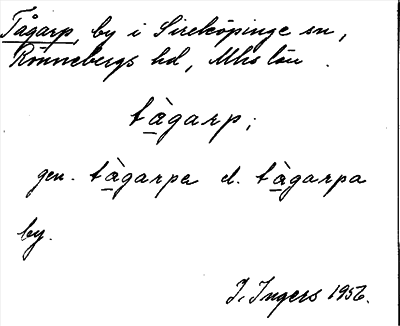 Tågarp, by i Sireköpinge sn,
Rönnebergs hd, Mhs län.
tàgarp;
gen. tàgarpa el. tàgarpa
by.
I. Ingers 1956.